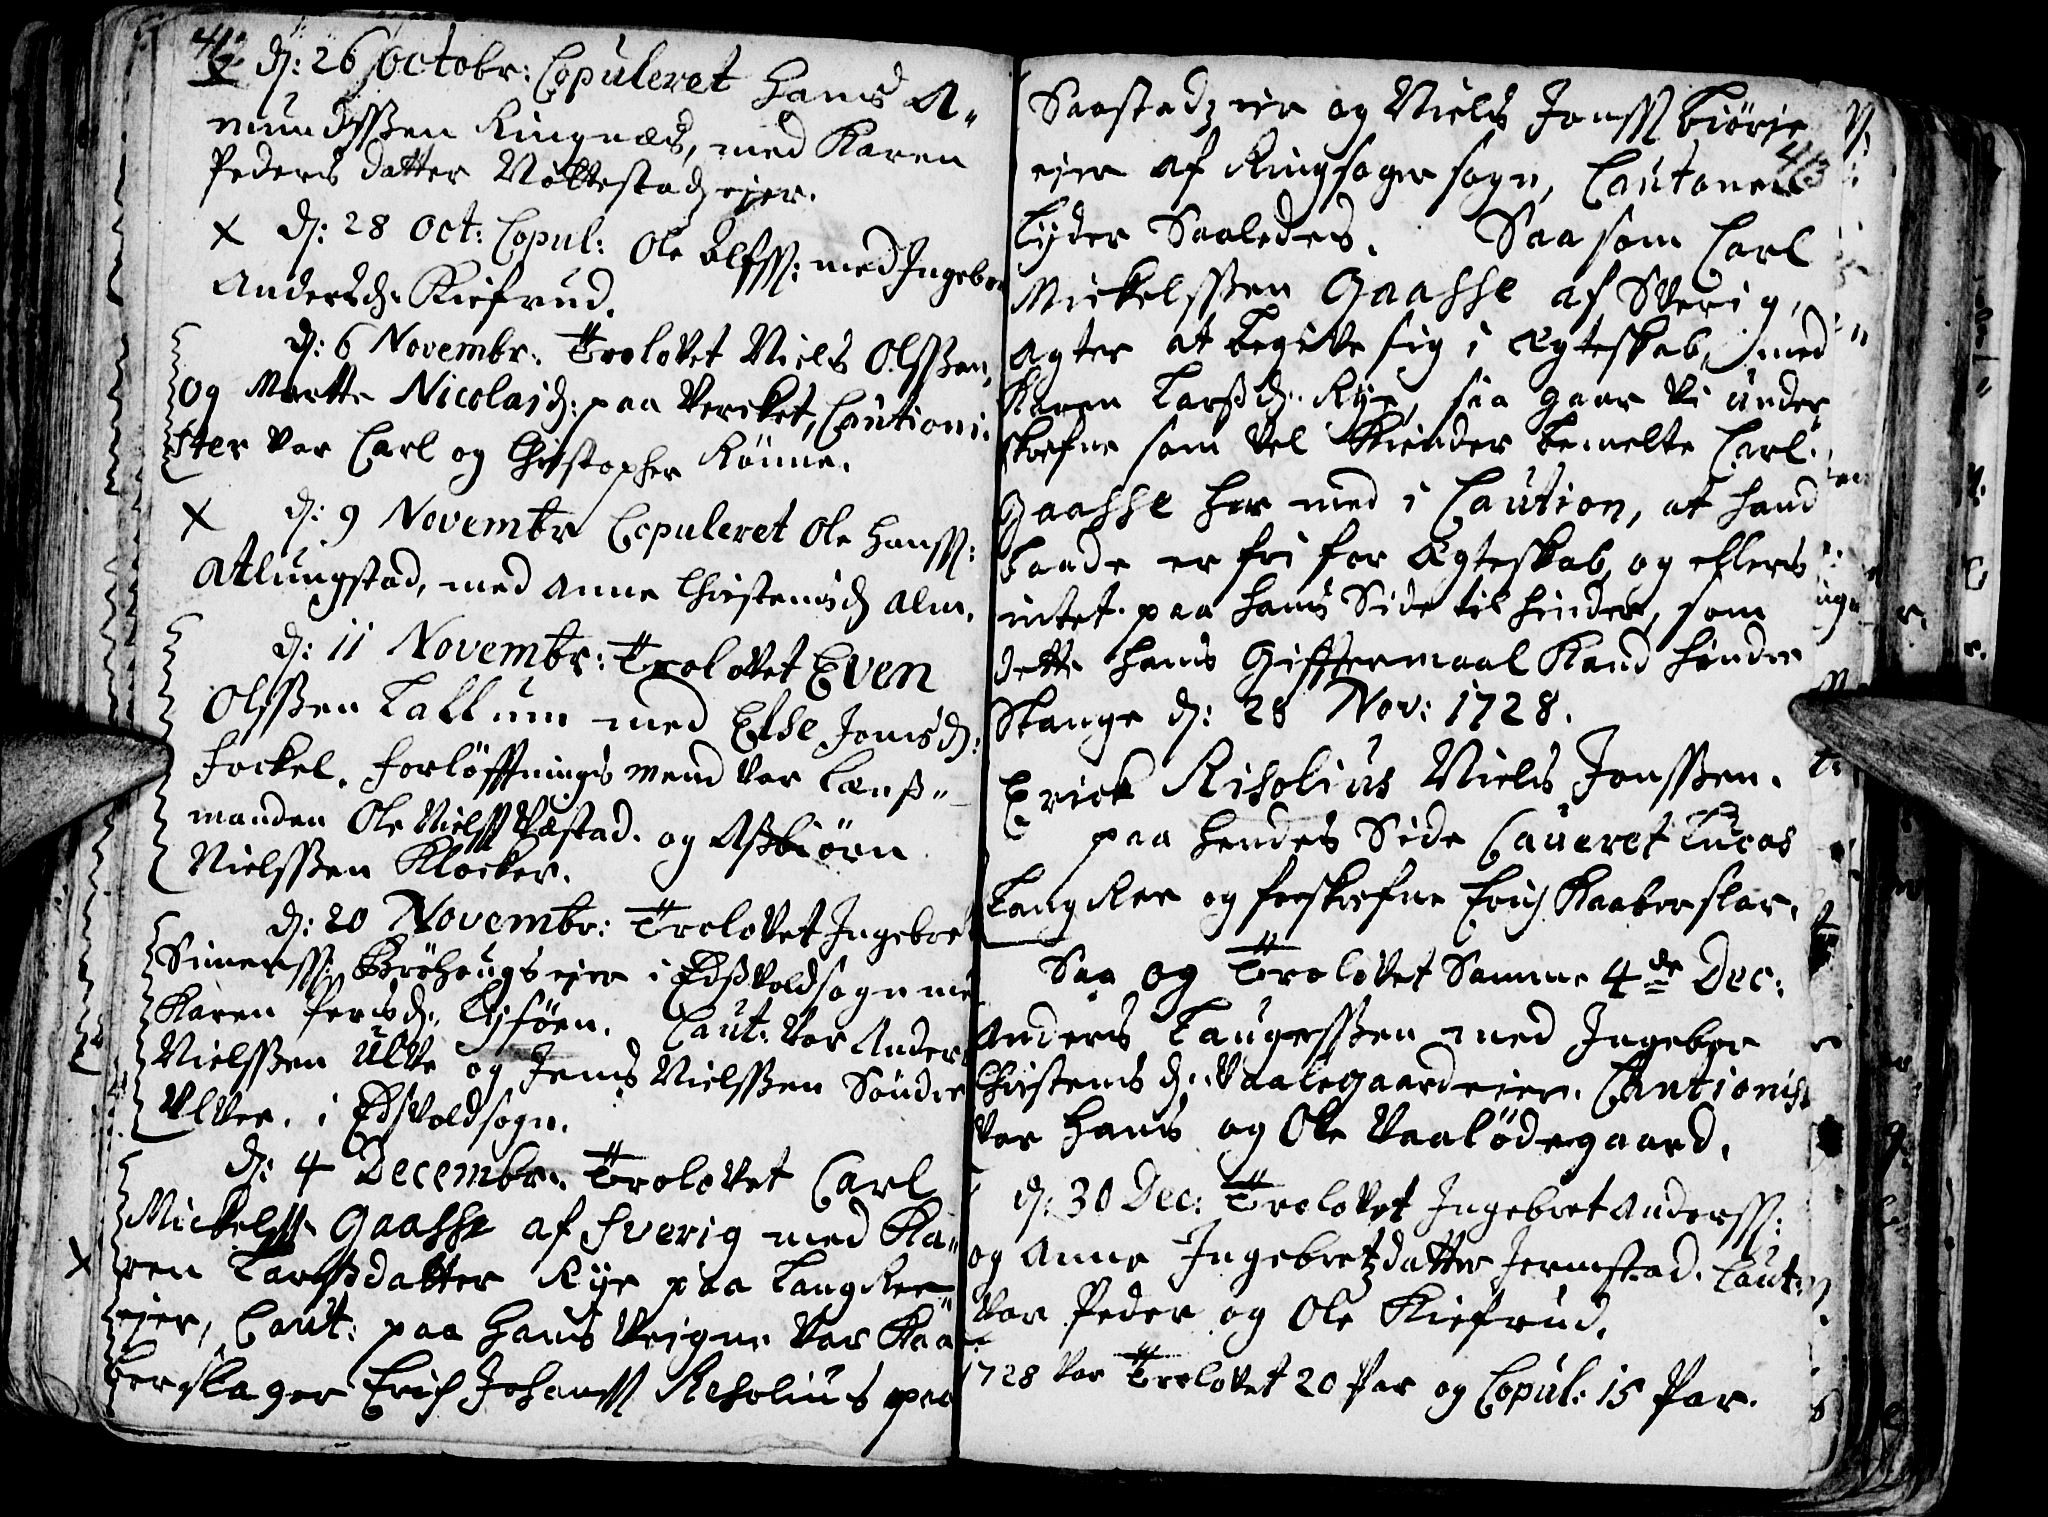 412
dj: 26 Octobr: Copuleret Hans A-
mundssøen Ringnæs, med Karen
Peders datter Nøttestad ejer.
x dj: 28 Oct: Copul: Ole Olfss: med Ingebor
Andersdr. Kiefrud.
dj: 6 Novembr: Trolovet Niels Olssøn,
og Marthe Nicolaidr: paa Vercket, Cautioni-
ster var Carl og Christopher Rønne.
x dj: 9 Novembr Copuleret Ole Hanss:
Atlungstad, med Anne Christensdr Alm.
dj: 11 Novembr: Trolovet Even
Olssøen Tallum med Else Jensdr:
Fockel. Forløfftnings mend var Lænß-
manden Ole Nielss Væstad. og Aßbiørn
Nielssøen Klocker.
dj: 20 Novembr: Trolovet Ingebret
Simenss: Brøhougs ejer i Edßvold sogn med
Karen Persdr. Lysøen. Caut: var Anders
Nielssøen Ulve og Jens Nielssøen Søndre
Ulver. i Edsvold sogn.
dj: 4 Decembr. Trolovet Carl
Mickelss Gaasse af Sverig med Ka-
x ren Larsdatter Rye paa Langkee-
ejer, Caut: paa Hans Veigne var Kaa
berslager Erich Johanss Risolius paa
413
Saastad ejer og Niels Jonss Biørje
ejer af Ringsager sogn, Cautonen
lyder Saaledes. Saa som Carl
Mickelssøen Gaasse af Sverig,
agter at begive sig i Ægteskab, med
Karen Larsdr. Rye, saa gaar vi under
skrefne som vel kiender bemelte Carl
Gaasse her med i Caution, at hand
baade er fri for Ægteskab, og ellers
intet paa hans Side til hinder, som
dette hans Gifftermaal kand hindre
Stange dj: 28 Nov: 1728.
Erick Risolius Niels Jonssøen.
paa hendes Side Caveret Lucas
Langkee og forskrefne Erich Kaaberslar.
Saa og Trolovet Samme 4de Dec:
Anders Laugerssøen med Ingebor
Christens dr. Vaalegaard ejer. Cautionist
var Hans og Ole Vaalødegaard.
dj: 30 Dec: Trolovet Ingebret Anderss:
og Anne Ingebretzdatter Jermstad. Caut:
var Peder og Ole Kiefrud.
1728 var Trolovet 20 Par og Copul: 15 Par.